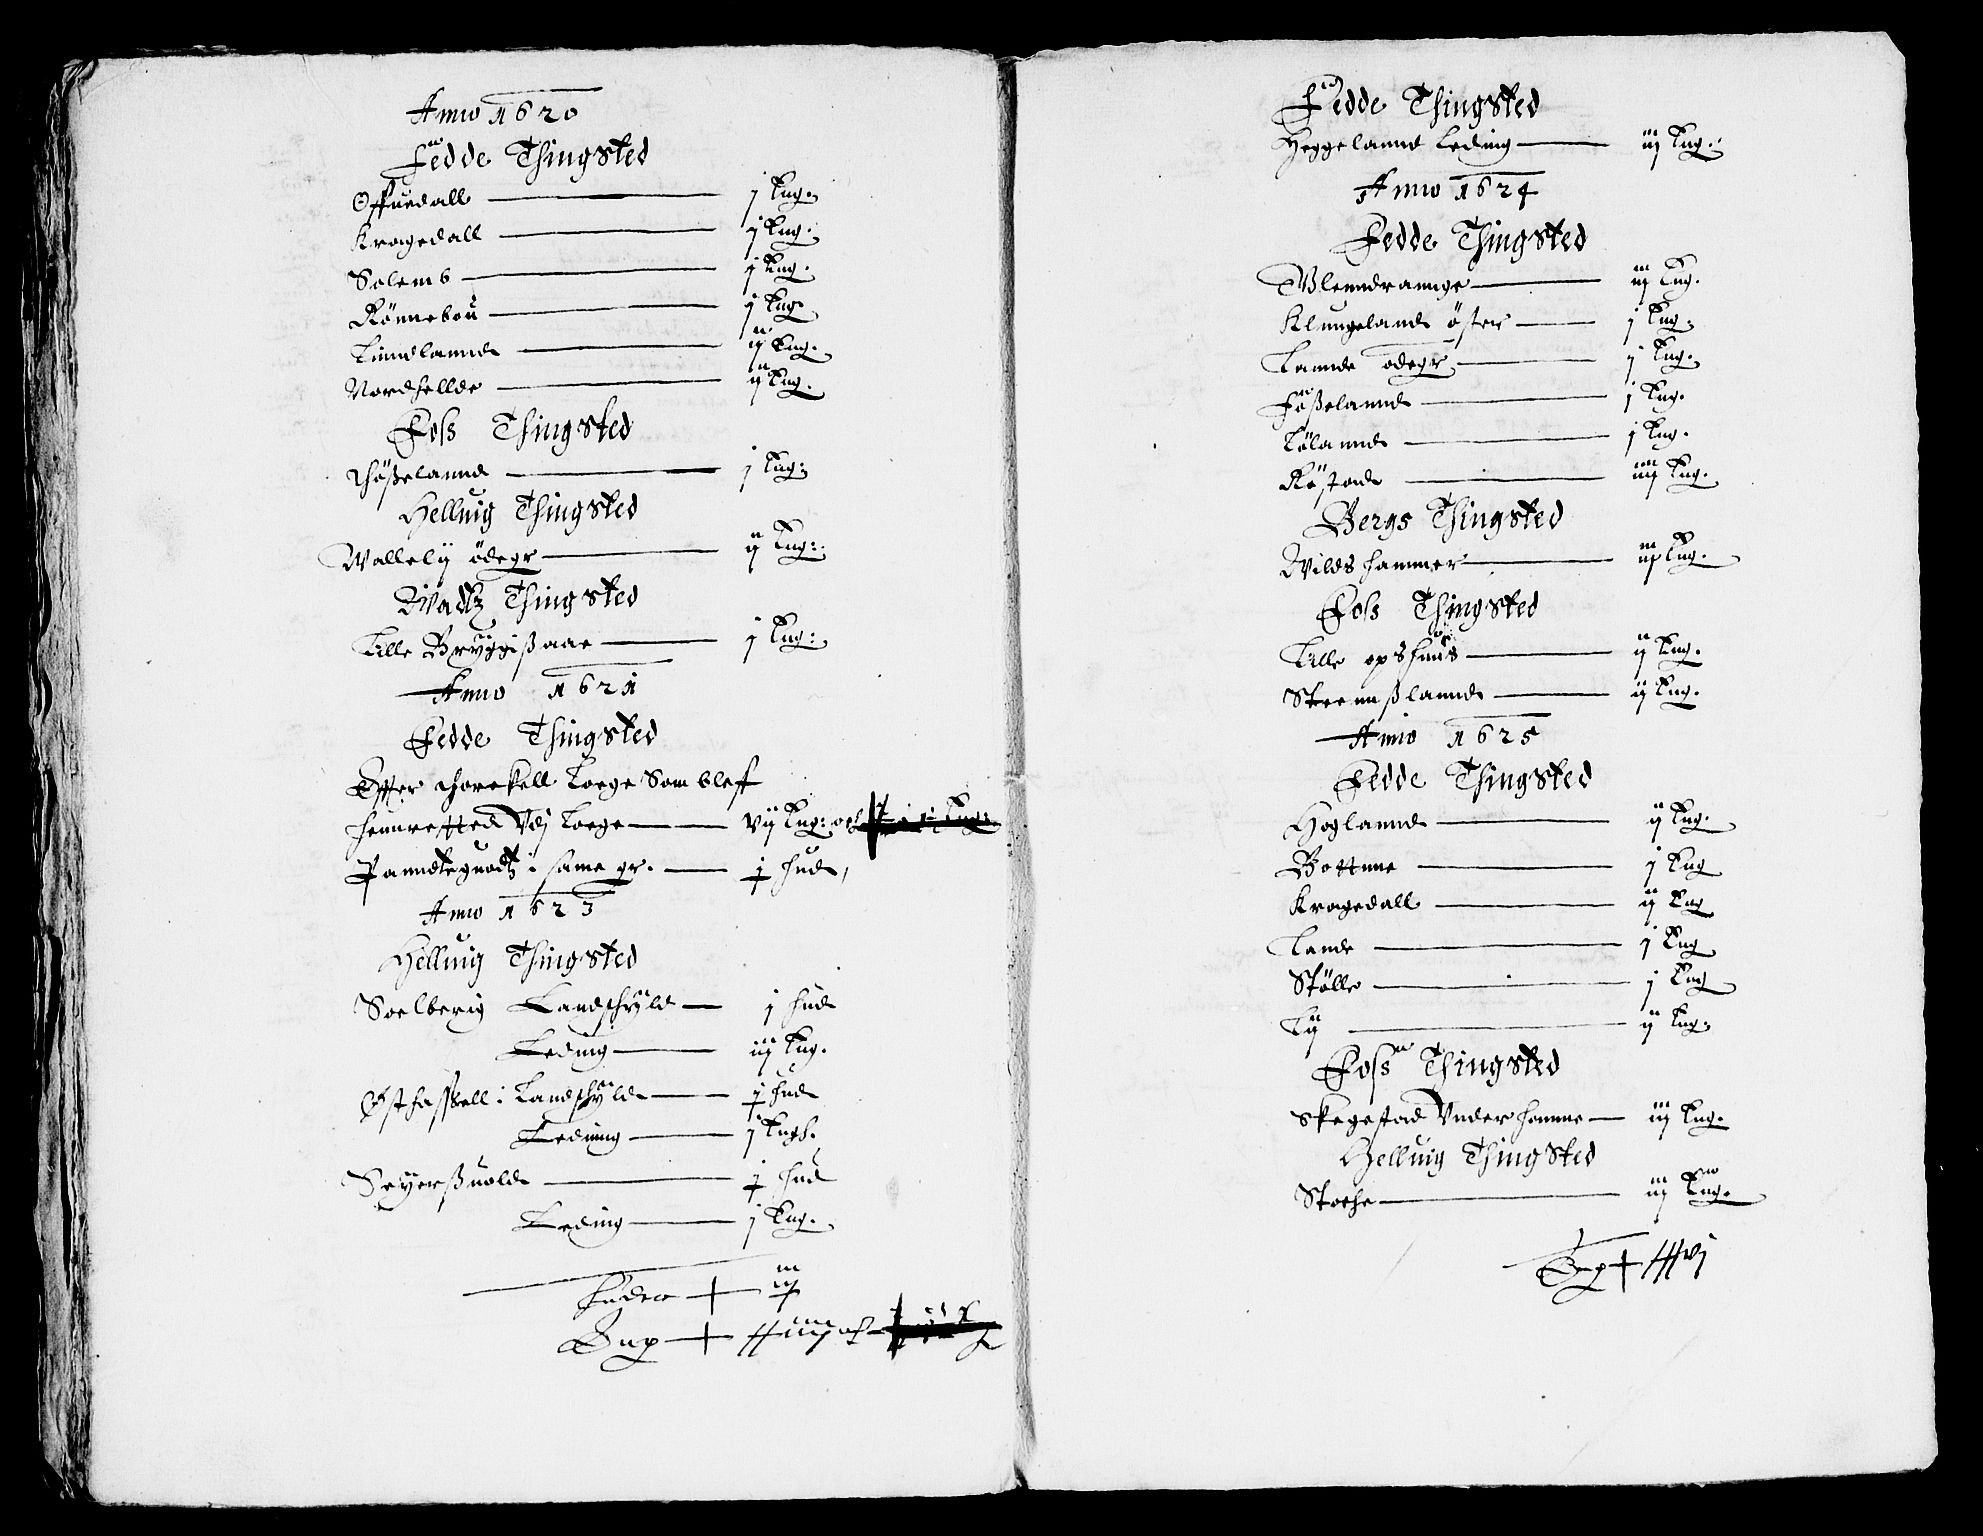 Anno 1620
Fedde Thingsted
Offuedall — j Eng.
Kragedall — j Eng.
Solemb — j Eng.
Rönnebou — j Eng.
Lindlannd — ij Eng.
Nordhellde — ij Eng.
Foss Thingsted
Thößelannd — j Eng:
Helluig Thingsted
Wallelÿ ödegr — ij Eng:
Wadtz Thingsted
Lille Brÿggißaae — j Eng:
Anno 1621
Fedde Thingsted
Effter Thorekell Loege Som blef
henretted Vdj Loege — vij Eng: och
Panndteguodtz i same gr. — j hud,
Anno 1623
Helluig Thingsted
Soelberig Landschÿld — j hud
Leding — iij Eng.
Østhassell i Landschÿld — j hud
Leding — j Engh.
Seÿerßuold — j hud
Leding — j Eng.
huder — iij
Fedde Thingsted
Heggelannd Leding — iij Eng.
Anno 1624
Fedde Thingsted
Wlenndrannge — iij Eng.
Klungeland öster — j Eng.
Lannde ödegr — j Eng.
Fößelannd — j Eng.
Lölannd — j Eng.
Röstad — iiij Eng.
Bergs Thingsted
Wildshammer — iij Eng.
Foss Thingsted
Lille opshus — ij Eng.
Steennßlannd — ij Eng.
Anno 1625
Fedde Thingsted
Hoglannd — ij Eng.
Bottnne — j Eng
Kragedall — ij Eng
Lande — j Eng
Stölle — j Eng
Lÿ — ij Eng.
Foss Thingsted
Skegestad Vnder hamme — iij Eng.
Helluig Thingsted
Stoehe — iij Eng.